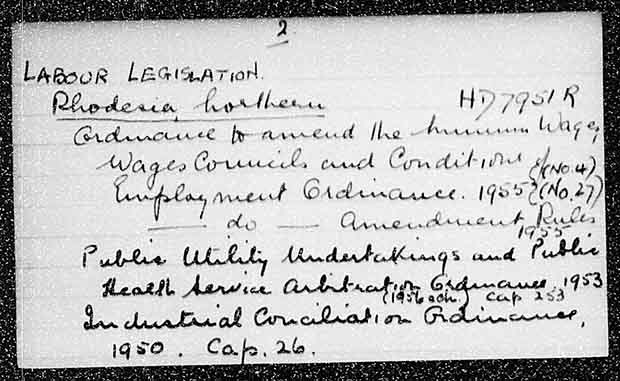 2
LABOUR LEGISLATION.
Rhodesia, Northern HD7951R
Ordinance to amend the Minimum Wages,
Wages Councils and Conditions of (No. 4)
Employment Ordinance. 1955 (No. 27)
— do — Amendment Rules
1955
Public Utility Undertakings and Public
Health Service Arbitration Ordinance, 1953
(1956 edn.) Cap 253
Industrial Conciliation Ordinance,
1950. Cap. 26.